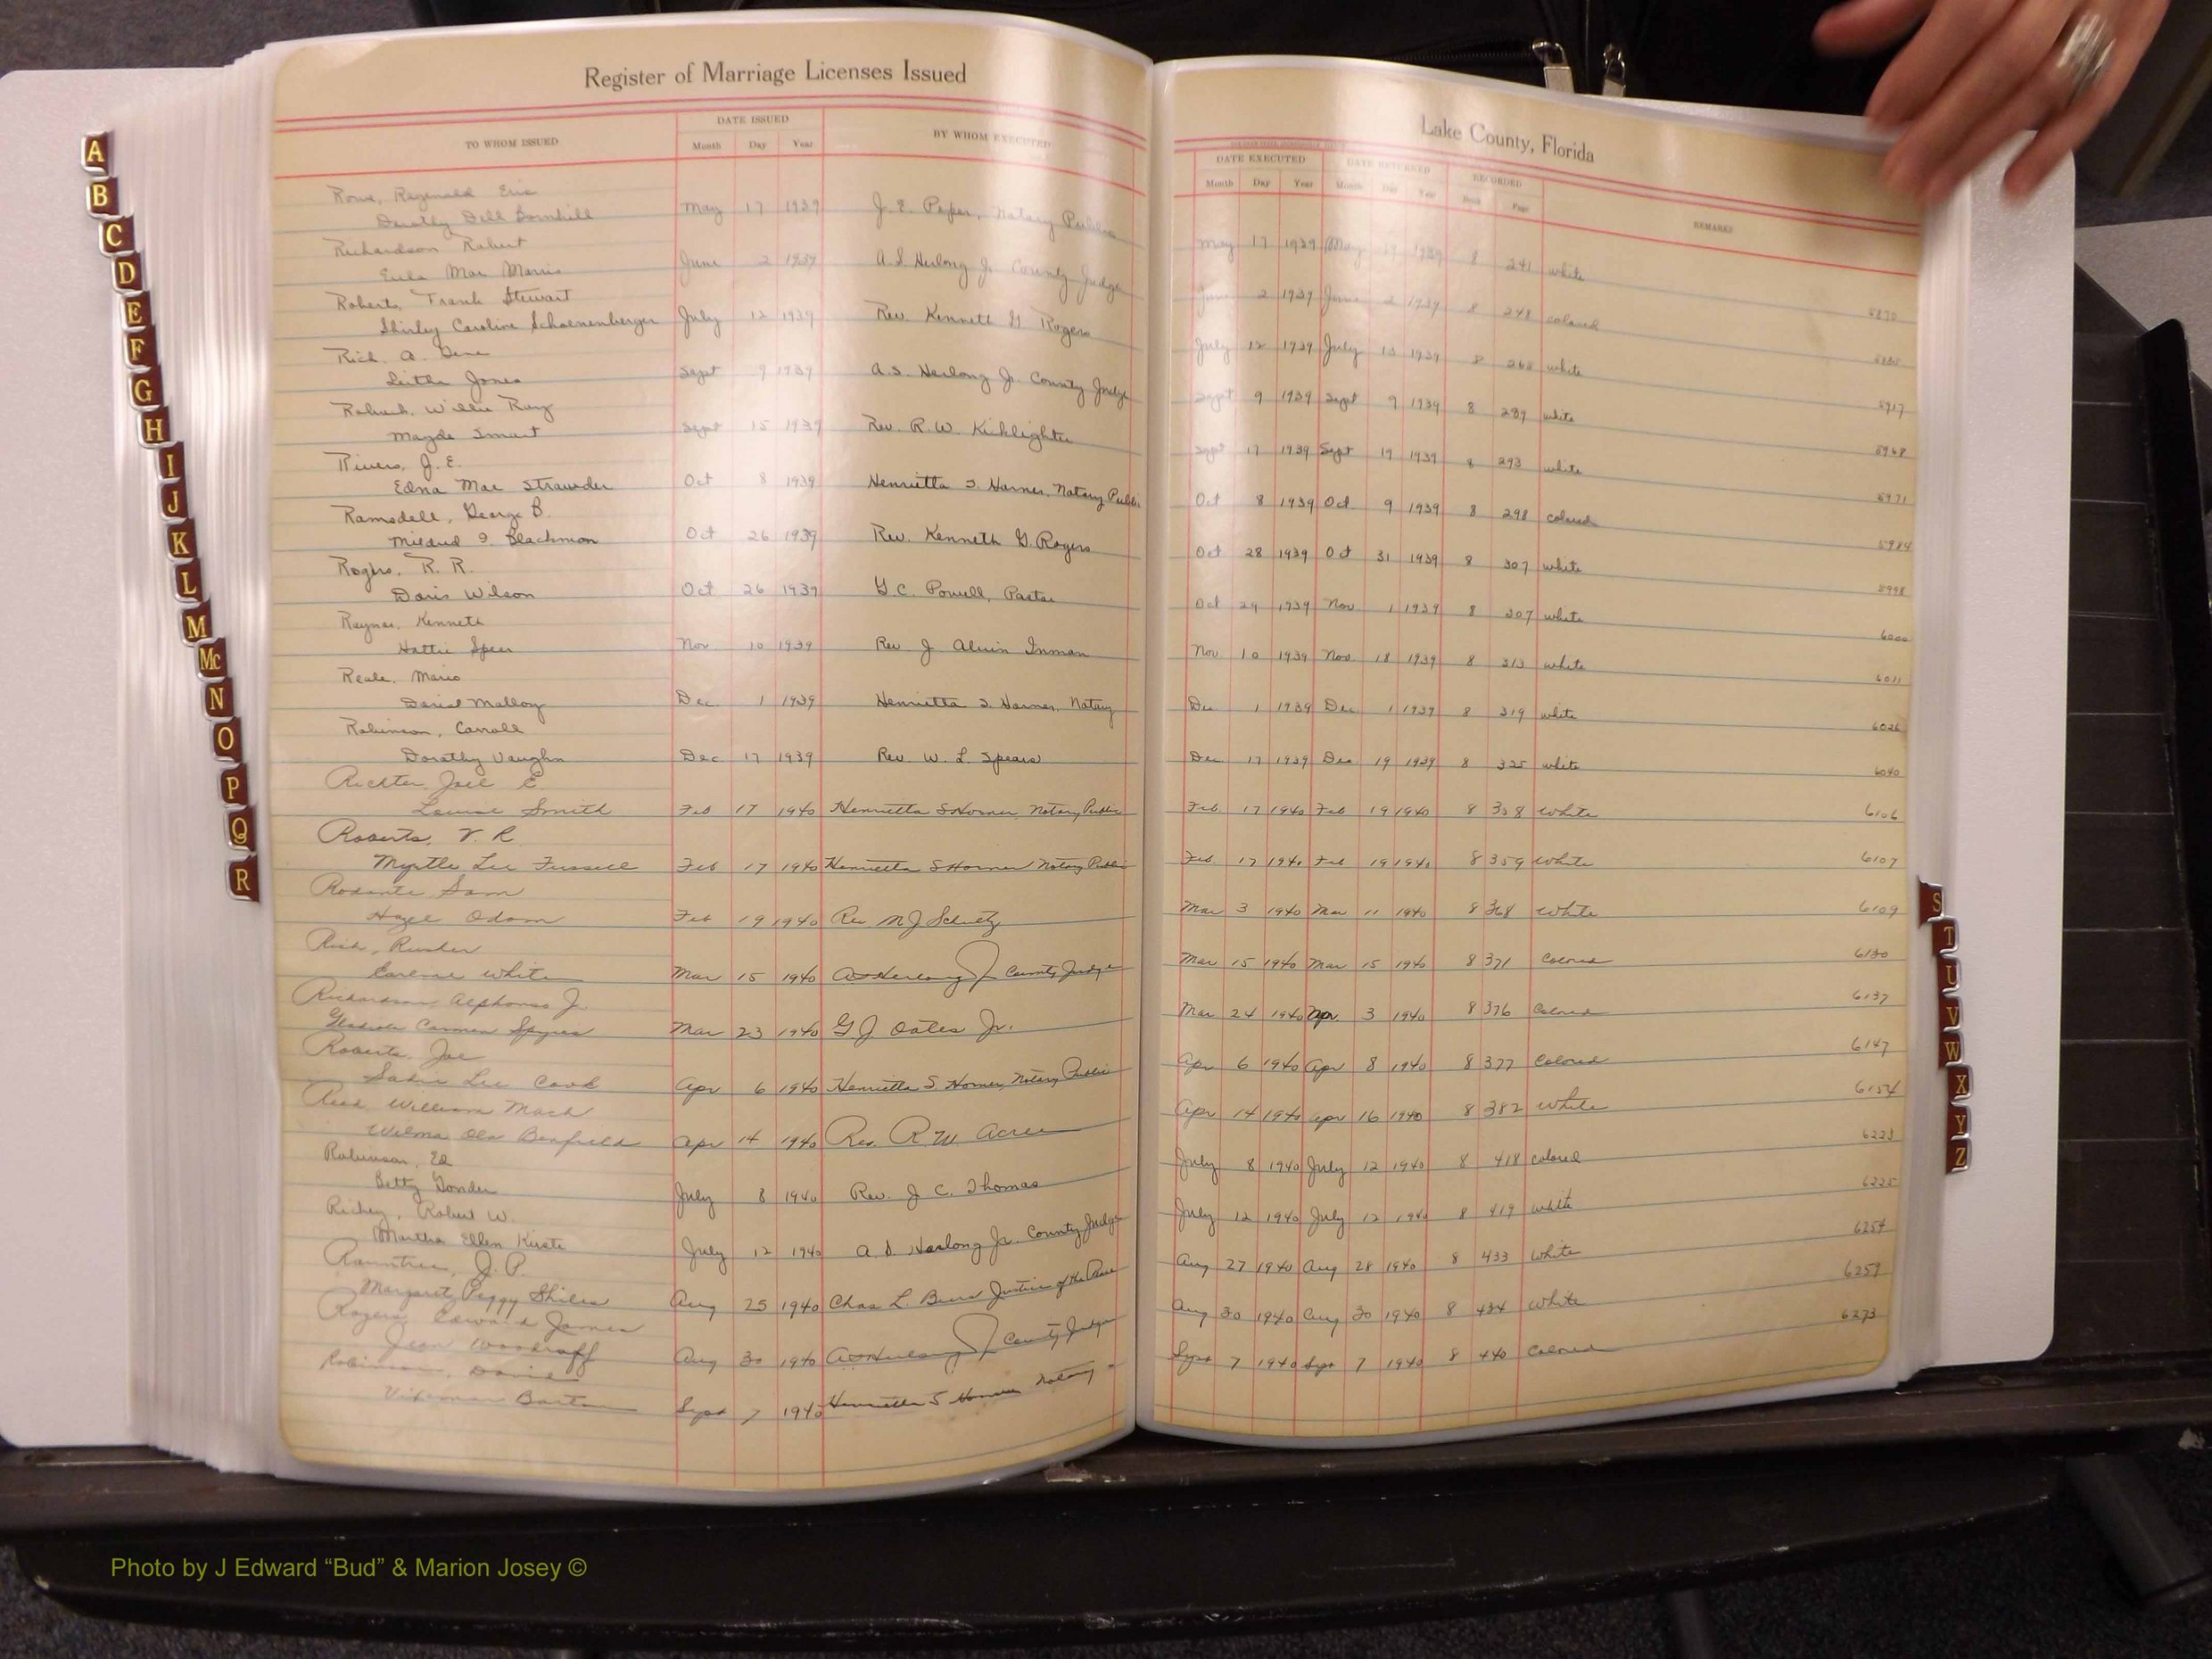 Register of Marriage Licenses Issued
TO WHOM ISSUED
DATE ISSUED
BY WHOM EXECUTED
Month Day Year
Rowe, Reginald Eric
Dorothy Dell Bornhill May 17 1939 J. E. Peper, Notary Public
Richardson Robert
Eula Mae Morris June 2 1939 A.S. Herlong Jr. County Judge
Roberts, Frank Stewart
Shirley Caroline Schoenenberger July 12 1939 Rev. Kenneth G Rogers
Rich, A. Gene
Leitha Jones Sept 9 1939 A.S. Herlong Jr. County Judge
Roberts, Willie Ray
Mayde Smart Sept 15 1939 Rev. R.W. Kicklighter
Rivers, J. E.
Edna Mae Strawder Oct 8 1939 Henrietta S. Horner, Notary Public
Ramsdell, George B.
Mildred I. Blackmon Oct 26 1939 Rev. Kenneth G. Rogers
Rogers, R. R.
Doris Wilson Oct 26 1939 G.C. Powell, Pastor
Raynor, Kenneth
Hattie Speer Nov. 10 1939 Rev J. Alvin Inman
Reale, Mario
Malloy Dec. 1 1939 Henrietta S. Horner, Notary
Robinson, Carroll
Dorothy Vaughn Dec 17 1939 Rev. W. L. Spears
Richter, Joel E.
Louise Smith Feb 17 1940 Henrietta S Horner, Notary Public
Roberts, V. R.
Myrtle Lee Fussell Feb 17 1940 Henrietta S Horner Notary Public
Rosante Sam
Hazel Odom Feb 19 1940 Rev N J Schultz
Rich,
Earlene White Mar 15 1940 A S Herlong Jr County Judge
Richardson, Alphonso J.
Carmen Spyres Mar 23 1940 G J Oates Jr.
Roberts, Joe
Sadie Lee Cook Apr 6 1940 Henrietta S Horner, Notary Public
Reed, William Mack
Wilma Ola Benfield Apr 14 1940 Rev. R. W. Acree
Robinson, Ed
Betty Gonder July 8 1940 Rev. J. C. Thomas
Richey, Robert W.
Martha Ellen Kirste July 12 1940 A. S. Herlong Jr. County Judge
Rountree, J. P.
Margaret Peggy Shiles Aug 25 1940 Chas L. Justice of the Peace
Rogers, Edward James
Jean Woodruff Aug 30 1940 A S Herlong Jr County Judge
Robinson, David
Barton Sept 7 1940 Henrietta S Horner Notary
Lake County, Florida
DATE EXECUTED
DATE RETURNED
RECORDED
REMARKS
Month Day Year Month Day Year Book Page
May 17 1939 May 19 1939 8 241 white 5870
June 2 1939 June 2 1939 8 248 colored
July 12 1939 July 13 1939 8 265 white 5917
Sept 9 1939 Sept 9 1939 8 289 white 5968
Sept 17 1939 Sept 19 1939 8 293 white 5971
Oct 8 1939 Oct 9 1939 8 298 colored 5984
Oct 28 1939 Oct 31 1939 8 307 white 5998
Oct 29 1939 Nov. 1 1939 8 307 white 6000
Nov 10 1939 Nov. 18 1939 8 313 white 6011
Dec. 1 1939 Dec. 1 1939 8 319 white 6026
Dec. 17 1939 Dec. 19 1939 8 325 white 6040
Feb. 17 1940 Feb 19 1940 8 358 white 6106
Feb. 17 1940 Feb 19 1940 8 359 white 6107
Mar 3 1940 Mar 11 1940 8 368 white 6109
Mar 15 1940 Mar 15 1940 8 371 Colored 6130
Mar 24 1940 Apr. 3 1940 8 376 Colored 6137
Apr 6 1940 Apr 8 1940 8 377 Colored 6147
Apr 14 1940 Apr 16 1940 8 382 white 6154
July 8 1940 July 12 1940 8 418 colored 6223
July 12 1940 July 12 1940 8 419 white 6225
Aug 27 1940 Aug 28 1940 8 433 White 6254
Aug 30 1940 Aug 30 1940 8 434 White 6259
Sept 7 1940 Sept 7 1940 8 440 Colored 6273
A
B
C
D
E
F
G
H
I
J
K
L
M
Mc
N
O
P
Q
R
S
T
U
V
W
X
Y
Z
Photo by J Edward “Bud” & Marion Josey ©